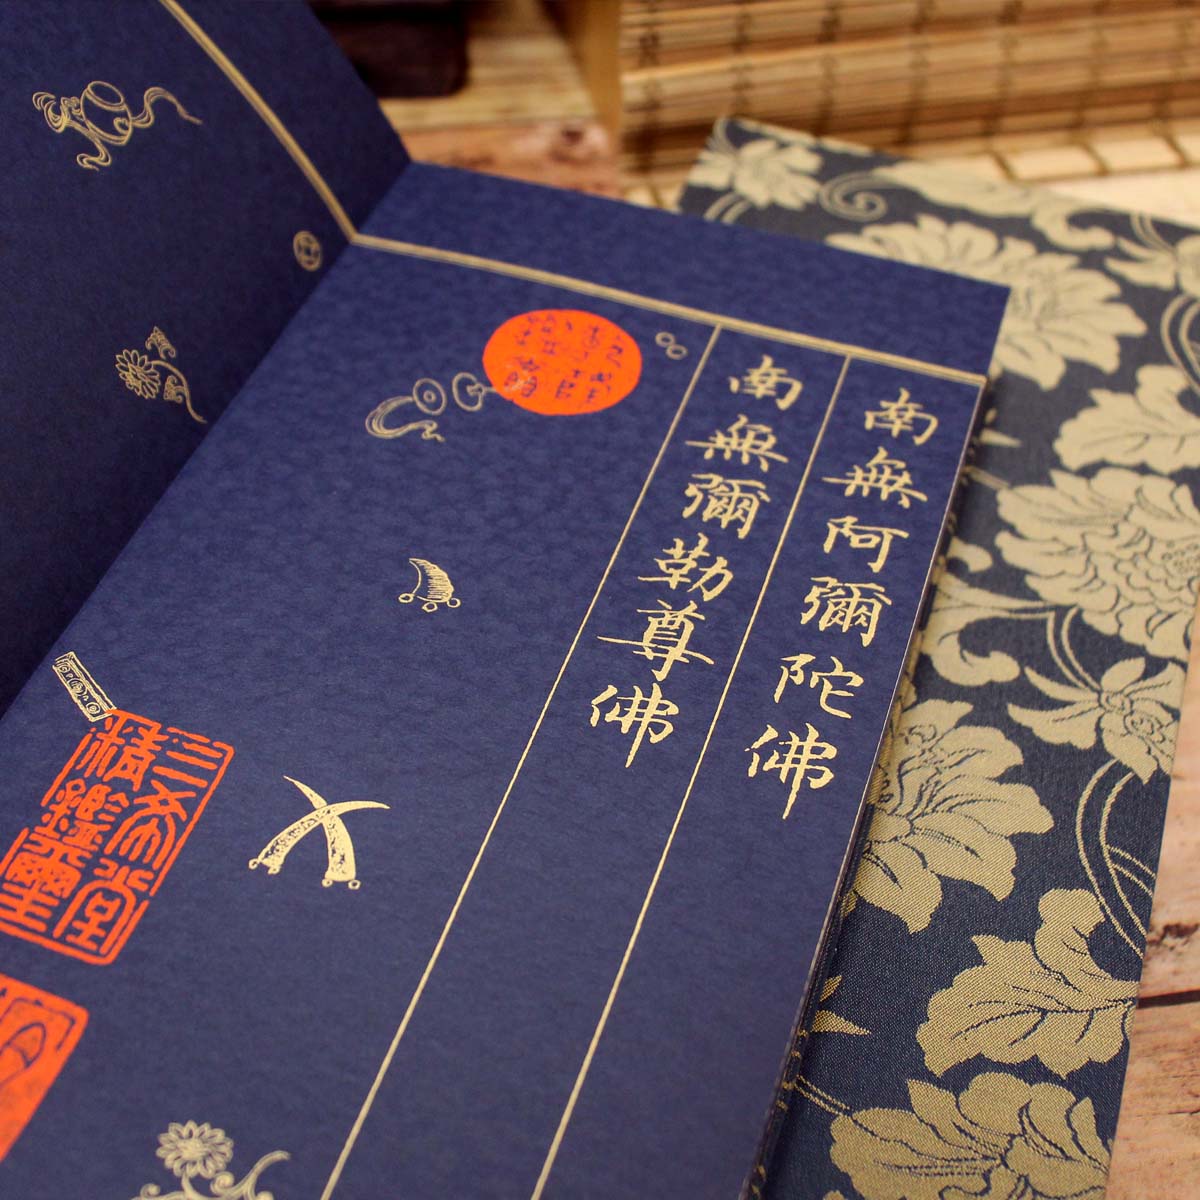 南無阿彌陀佛
南無彌勒尊佛
三希堂
精鑑璽